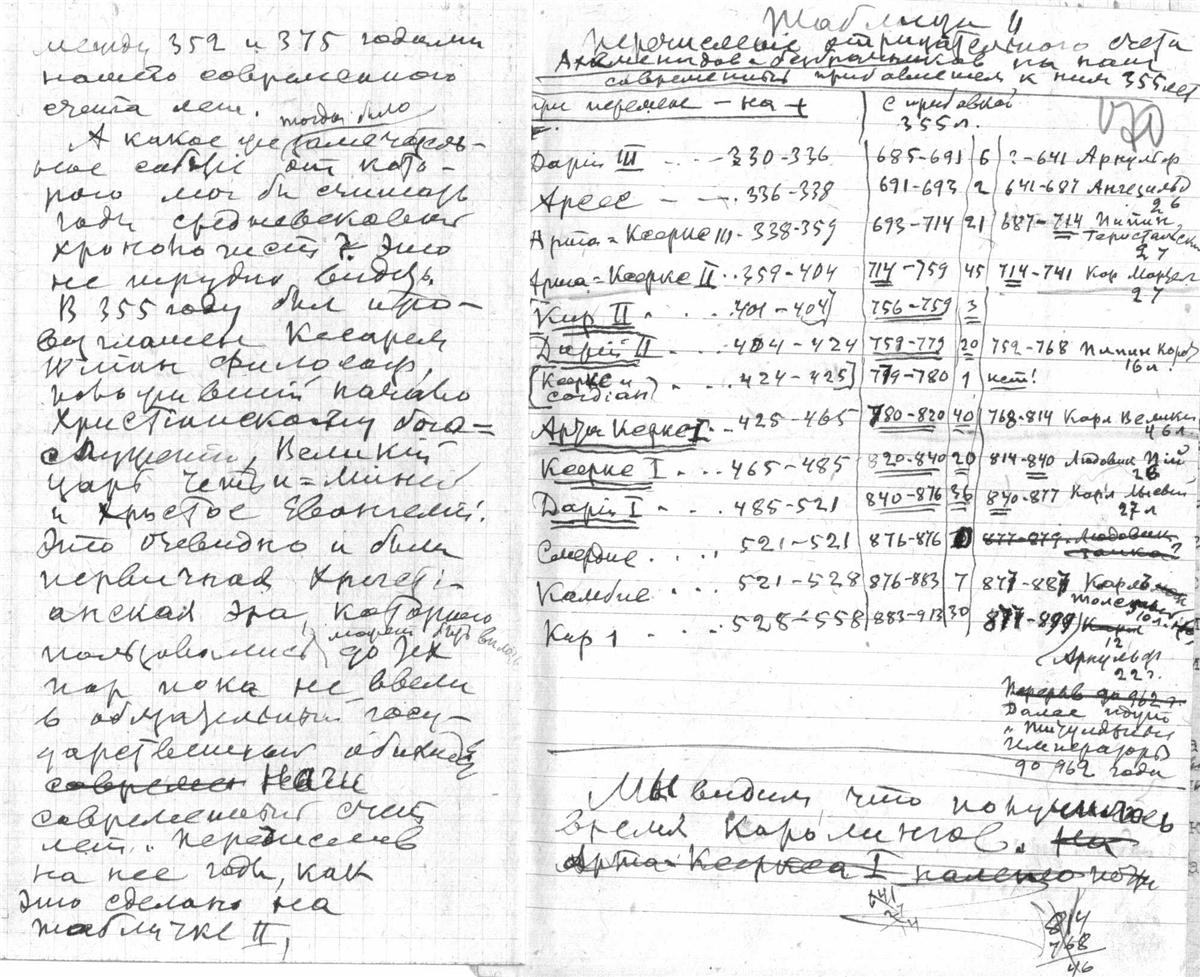 между 352 и 375 годами
нашего современного
счета лет.
тогда было
А какое же замечатель-
ное событіе от кото-
рого мог бы считать
годы средневековый
хронологист? Это
не трудно видеть.
В 355 году был про-
возглашен Кесарем
Юлиан Философ,
положивший начало
Христіанскому бого=
служению, Великій
царь
и Христос Евангелій.
Это очевидно и была
первичная христі-
анская эра, которой
может быть
пользовались до тех
пор пока не ввели
в обязательный госу-
дарственный обиход
современ наш
современный счет
лет. Перечислив
на нее годы, как
это сделано на
табличке II,
Таблица II
Перечисление отрицательного счета
Ахеменидов на наш
современный прибавлением к ним 355 лет
при перемене – на +
с прибавкой
355 л.
170
Дарій III . . . –330-336 685-691 6 ?-641 Арнульф
Арсес – – . 336-338 691-693 2 641-687 Ангезильд
26
Арта=Ксеркс III – 338-359 693-714 21 687-714 Пипин
Геристальский
27
Арта=Ксеркс II . . 359-404 714-759 45 714-741 Кар Мартел
27
[Кир II . . . 401-404] 756-759 3
Дарій II . . . 404-424 759-779 20 752-768 Пипин Корот
16 л
[Ксеркс и 424-425] 779-780 1 нет!
Cogdian]
Арта Ксеркс I . . 425-465 780-820 40 768-814 Карл Великий
46 л
Ксеркс I . . . 465-485 820-840 20 814-840 Людовик Пій
26
Дарій I . . . 485-521 840-876 36 840-877 Карл Лысый
27 л
Смердис . . . . 521-521 876-876 0 877-879 Людовик
заика?
Камбис . . . . 521-528 876-883 7 877-887 Карл
Толстый
10 л
Кир I . . . . 528-558 883-913 30 877-899 Карл
12
Арнульф
22 г.
Перерыв до 962 г
Далее идут
императоры
до 962 года
Мы видим, что получилось
время Каролингов. На
Арта-Ксеркса I
641
814
768
46